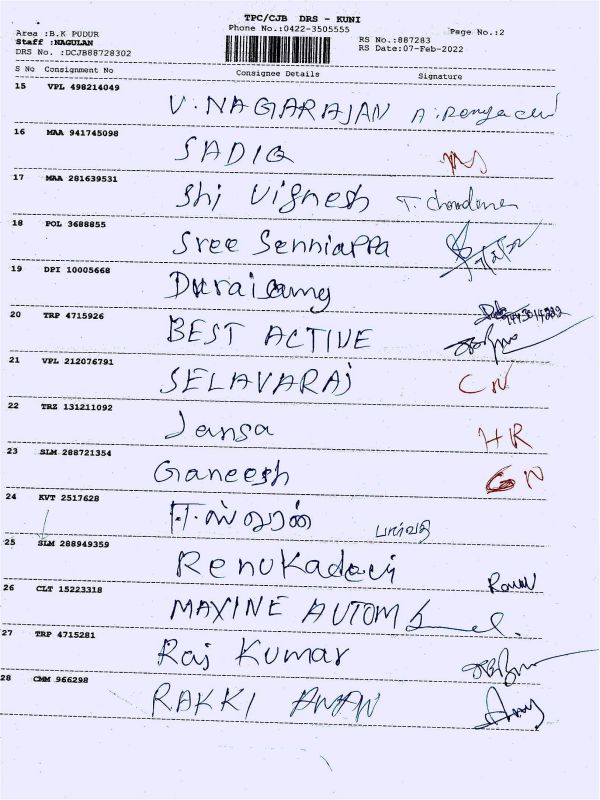 TPC/CJB DRS - KUNI
Phone No.:0422-3505555
Area :B.K PUDUR
Staff :NAGULAN
DRS No. :DCJB88728302
RS No.:887283
RS Date:07-Feb-2022
Page No.:2
S No Consignment No Consignee Details Signature
15 VPL 498214049
V.NAGARAJAN
16 MAA 941745098
SADIQ
17 MAA 281639531
Shi Vignesh
18 POL 3688855
Sree Senniappa
19 DPI 10005668
Duraisamy
20 TRP 4715926
BEST ACTIVE
21 VPL 212076791
SELAVARAJ CN
22 TRZ 131211092
Jansa HR
23 SLM 288721354
Ganeesh GN
24 KVT 2517628
பார்வதி
25 SLM 288949359
Renukadevi
26 CLT 15223318
MAXINE AUTOM
27 TRP 4715281
Raj Kumar
28 CMM 966298
RAKKI AMAN